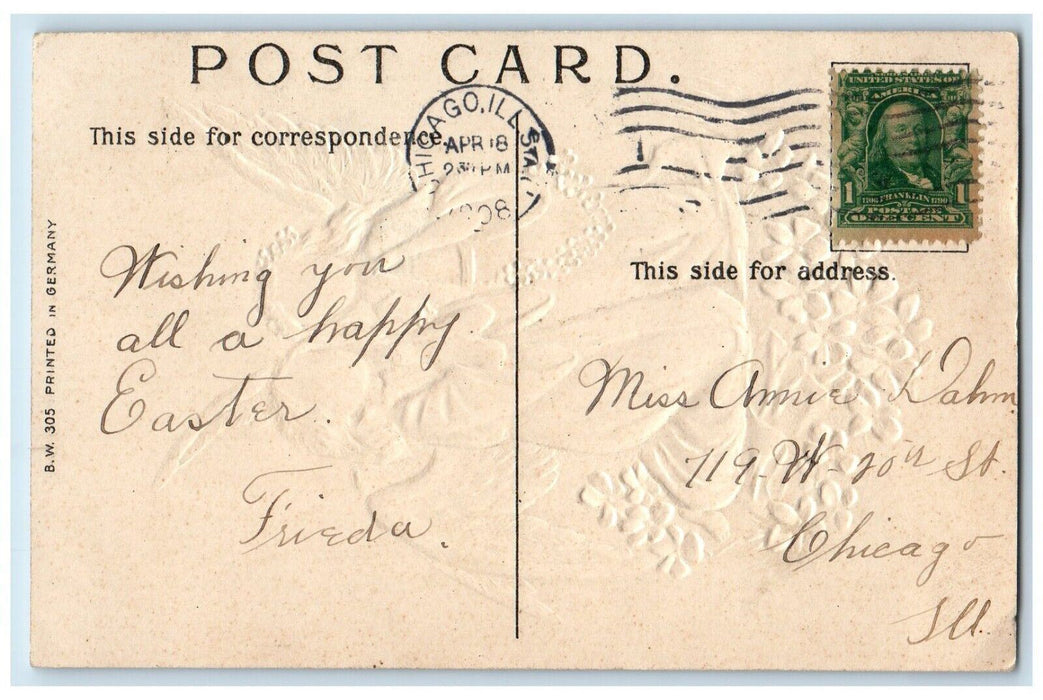 POST CARD.
This side for correspondence.
CHICAGO, ILL. STA
APR 18
PM
1908
UNITED STATES OF
AMERICA
1 1
1706 FRANKLIN 1790
POSTAGE
ONE CENT
This side for address.
B.W. 305 PRINTED IN GERMANY
Wishing you
all a happy
Easter.
Frieda.
Miss Annie Dahm
719 - W - 20th St.
Chicago
Ill.